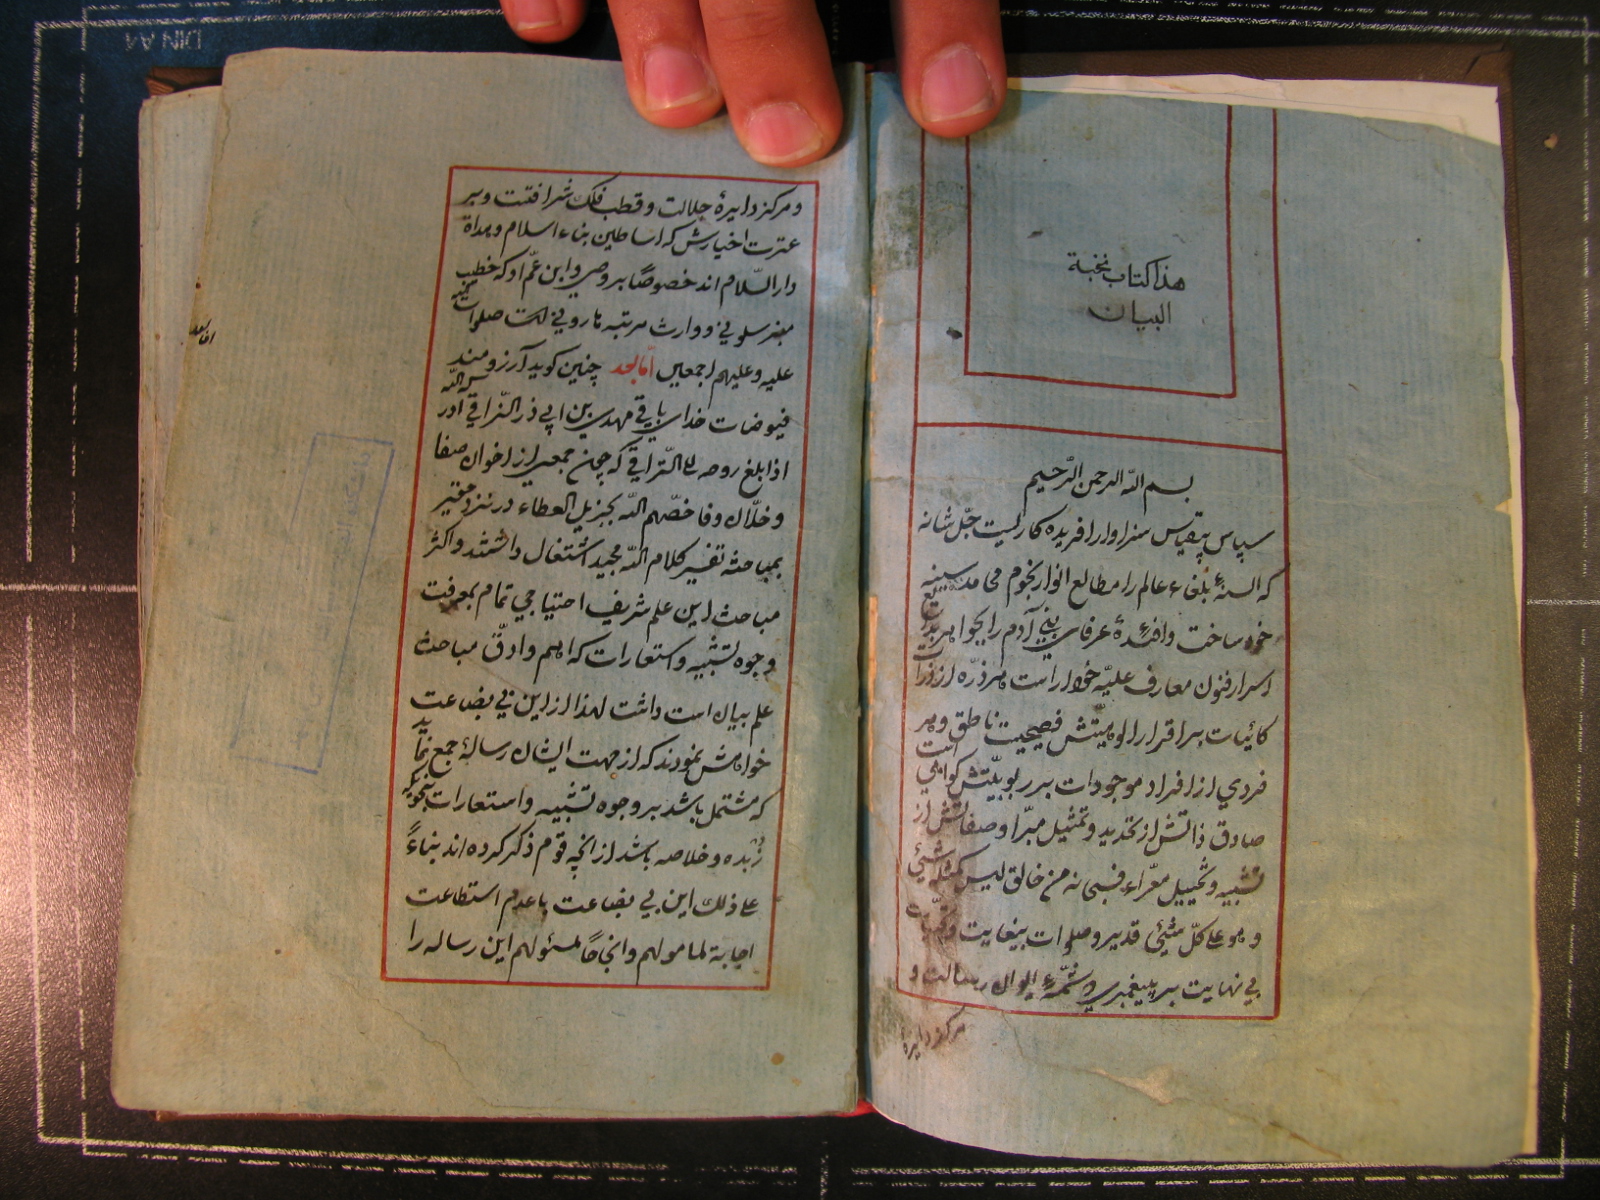 هذا كتاب نخبة
البيان
بسم الله الرحمن الرحيم
سپاس بيقياس سزاوار افريده كاريست جل شانه
كه السنۀ بلغاء عالم را مطالع انوار نجوم محامد سنيه
خود ساخت وافئدۀ عرفاى بنى آدم را بحواهر بدايع
اسرار فنون معارف عليّه خود اراست هر ذرّه از ذرات
كائنات بر اقرار الوهيّتش فصيحيست ناطق وهر
فردي از افراد موجودات بر ربوبيّتش كواهي است
صادق ذاتش از تحديد وتمثيل مبرّا وصفاتش از
تشبيه وتخييل معرّاء فسبحانه من خالق ليس كمثله شئ
وهو على كلّ شئ قدير وصلوات بيغايت وتحيّات
بي نهايت بر پيغمبري شمسۀ ايوان رسالت و
مركز دايرۀ
ومركز دايرۀ جلالت وقطب فلك شرافتت وبر
عترت اخيارش كه اساطين بناء اسلام وهداة
دار السّلام اند خصوصًا بر وصي وابن عّم او كه خطيب
منبر سلوني ووارث مرتبه هاروني است صلوات الله
عليه وعليهم اجمعين امّا بعد چنين كويد آرزومند
فيوضات خداى باقي مهدي بن ابي ذر النّراقي نور الله
اذا بلغ روحه الى التّراقي كه چون جمعي از اخوان صفا
وخلّان وفا خصّهم اللّه بجزيل العطاء در نزد فقير
بمباحثه تفسير كلام اللّه مجيد اشتغال داشتند واكثر
مباحث اين علم شريف احتياجي تمام بمعرفت
وجوه تشبيه واستعارات كه اهم وادقّ مباحث
علم بيان است داشت لهذا از اين بي بضاعت
خواهش نمودند كه از جهت ايشان رسالۀ جمع نمايد
كه مشتمل باشد بر وجوه تشبيه واستعارات بنحويكه
زبده وخلاصه باشد از انچه قوم ذكر كرده اند بناءً
على ذلك اين بي بضاعت با عدم استطاعت
اجابة لمامولهم وانجاحًا لمسئولهم اين رساله را